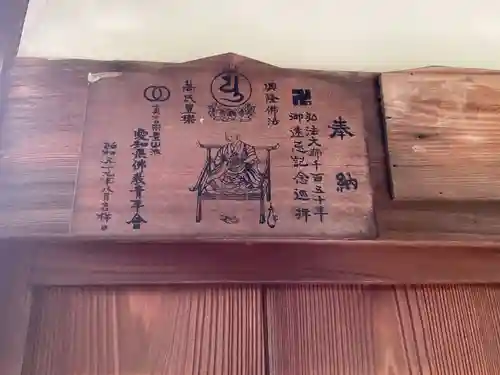 奉納
弘法大師千百五十年
御遠忌記念巡拝
興隆佛法
萬民豊楽
愛知県佛教青年会
昭和五十九年八月吉祥日